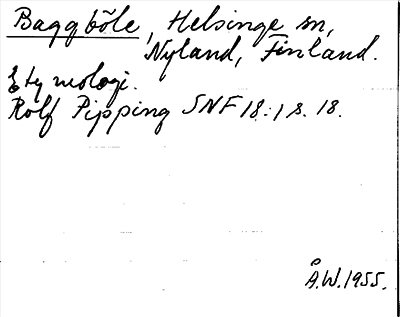 Baggböle, Helsinge sn,
Nyland, Finland.
Etymologi.
Rolf Pipping SNF 18:1 s. 18.
Å.W. 1955.